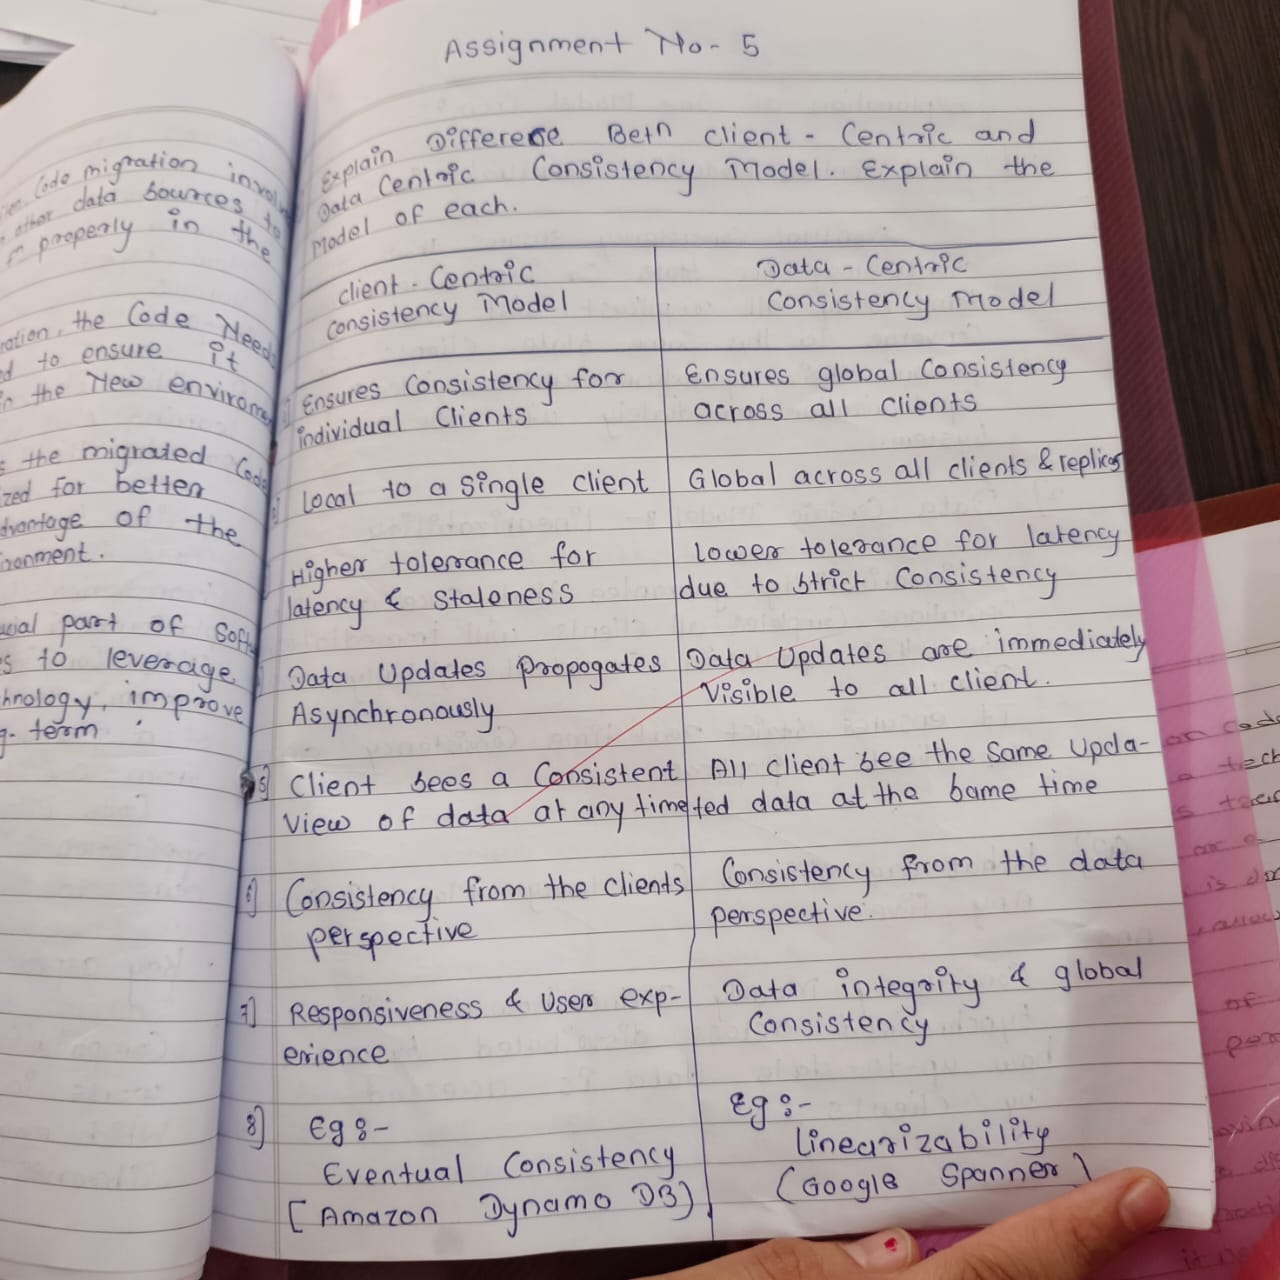 Code migration
other data sources to
properly in the
the Code Need
to ensure it
the New
the migrated
for better
of the
part of
to leverage
improve
term
Assignment No - 5
Explain Differece Betn client - Centric and
Data Centric Consistency Model. Explain the
Model of each.
client - Centric
Consistency Model
Data - Centric
Consistency Model
Ensures Consistency for
individual Clients
Ensures global Consistency
across all clients
local to a single client
Global across all clients & replicas
Higher tolerance for
latency & Staleness
lower tolerance for latency
due to strict Consistency
Data Updates Propogates
Asynchronously
Data Updates are immediately
Visible to all client.
5] Client sees a Consistent
View of data at any time
All client see the same Upda-
ted data at the same time
6] Consistency from the clients
perspective
Consistency from the data
perspective.
7] Responsiveness & User exp-
erience
Data integrity & global
Consistency
8] Eg :-
Eventual Consistency
[Amazon Dynamo DB)
Eg :-
Linearizability
(Google Spanner)